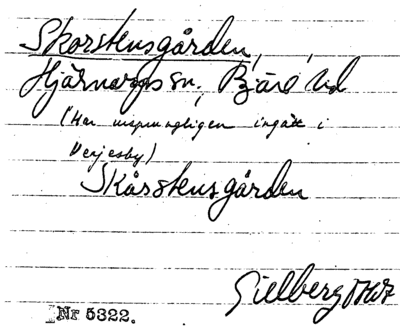 Skorstensgården,
Hjärnarps sn., Bjäre hd
(Har ursprungligen ingått i
Värjesby)
Skårstensgården
Gillberg 1767
Nr 5322.